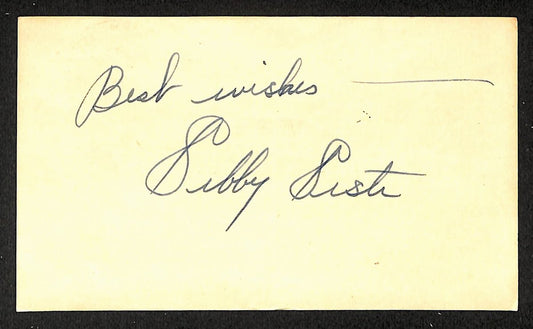 Best wishes —
Sibby Sisti